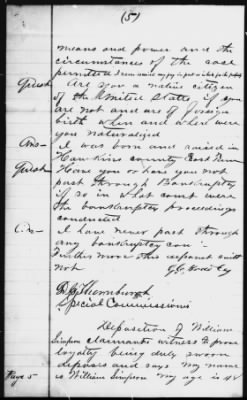 (5)
means and power and the
circumstances of the case
permitted
Quest Are you a native citizen
of the United States if you
are not and are of foreign
birth when and where were
you naturalized
Ans- I was born and raised in
Hawkins county East Tenn
Quest Have you or have you not
past through Bankruptcy
if so in what court were
the bankruptcy proceedings
conducted
Ans- I have never past through
any bankruptcy court :-
Further more this deponent saith
not
Thornburgh
Special Commissioner
Deposition of William
Simpson claimants witness to prove
loyalty being duly sworn
deposes and says my name
is William Simpson my age is 48
Page 5